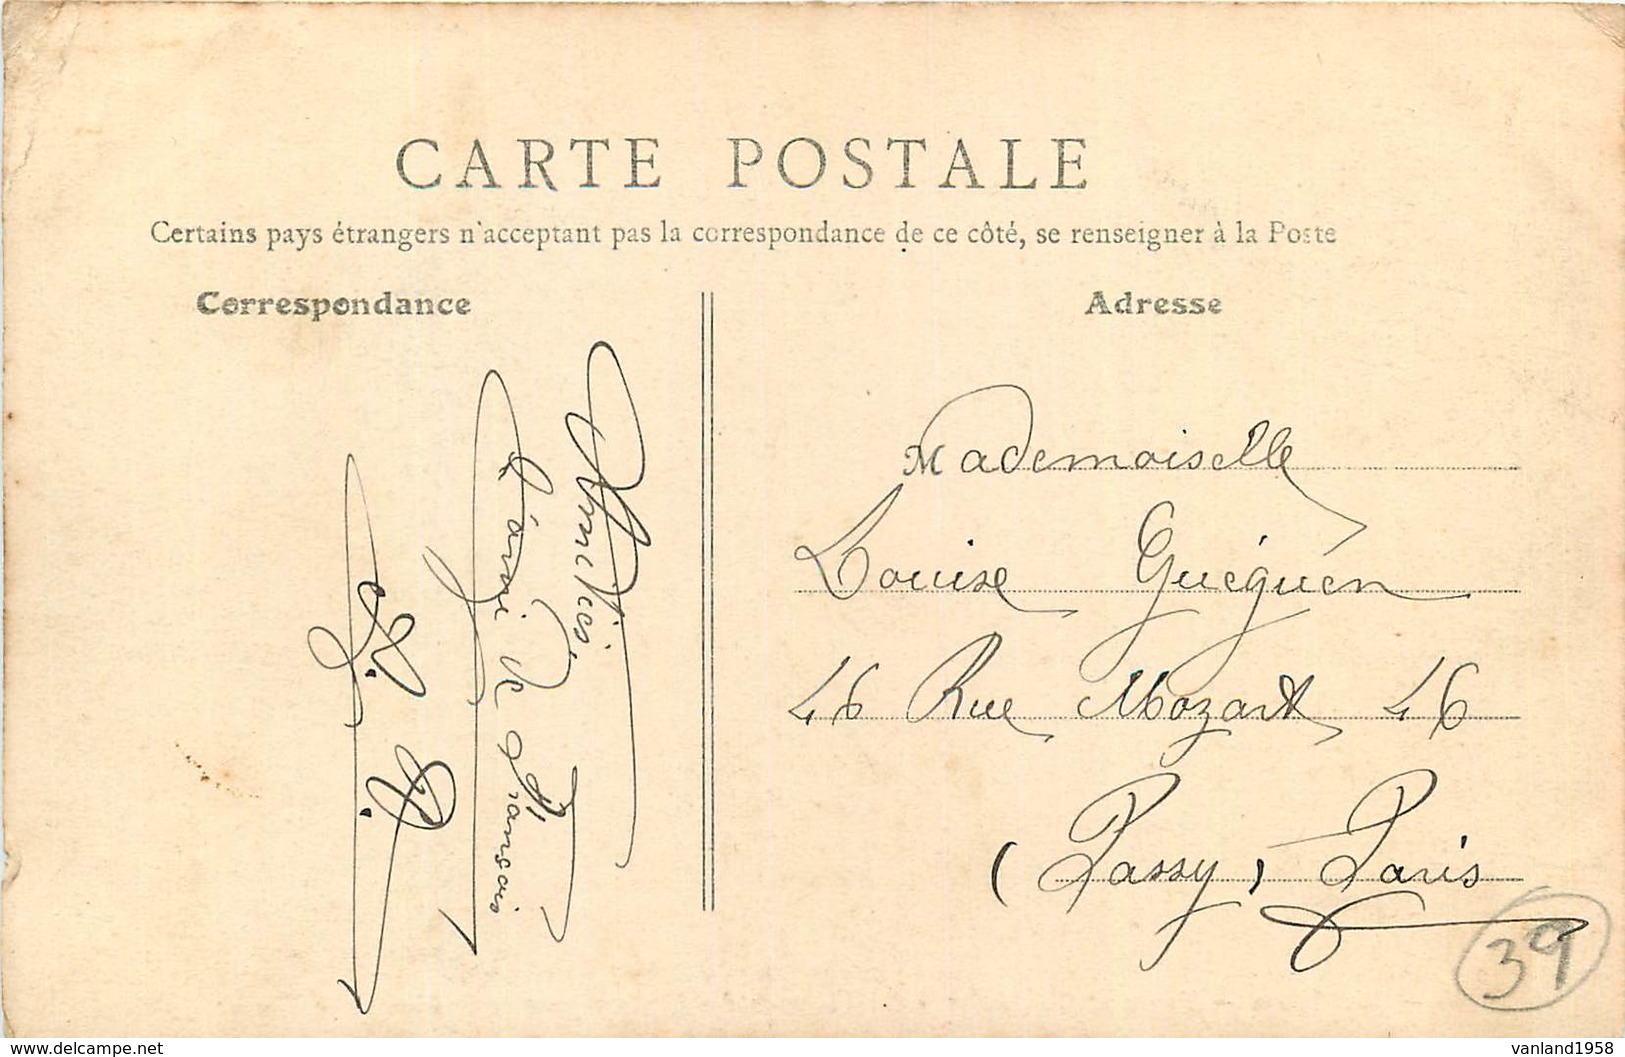 CARTE POSTALE
Certains pays étrangers n'acceptant pas la correspondance de ce côté, se renseigner à la Poste
Correspondance
Adresse
Amitiés,
L'ami de François
Mademoiselle
Louise Guéguen
46 Rue Mozart 46
(Passy) Paris
39
www.delcampe.net
vanland1958